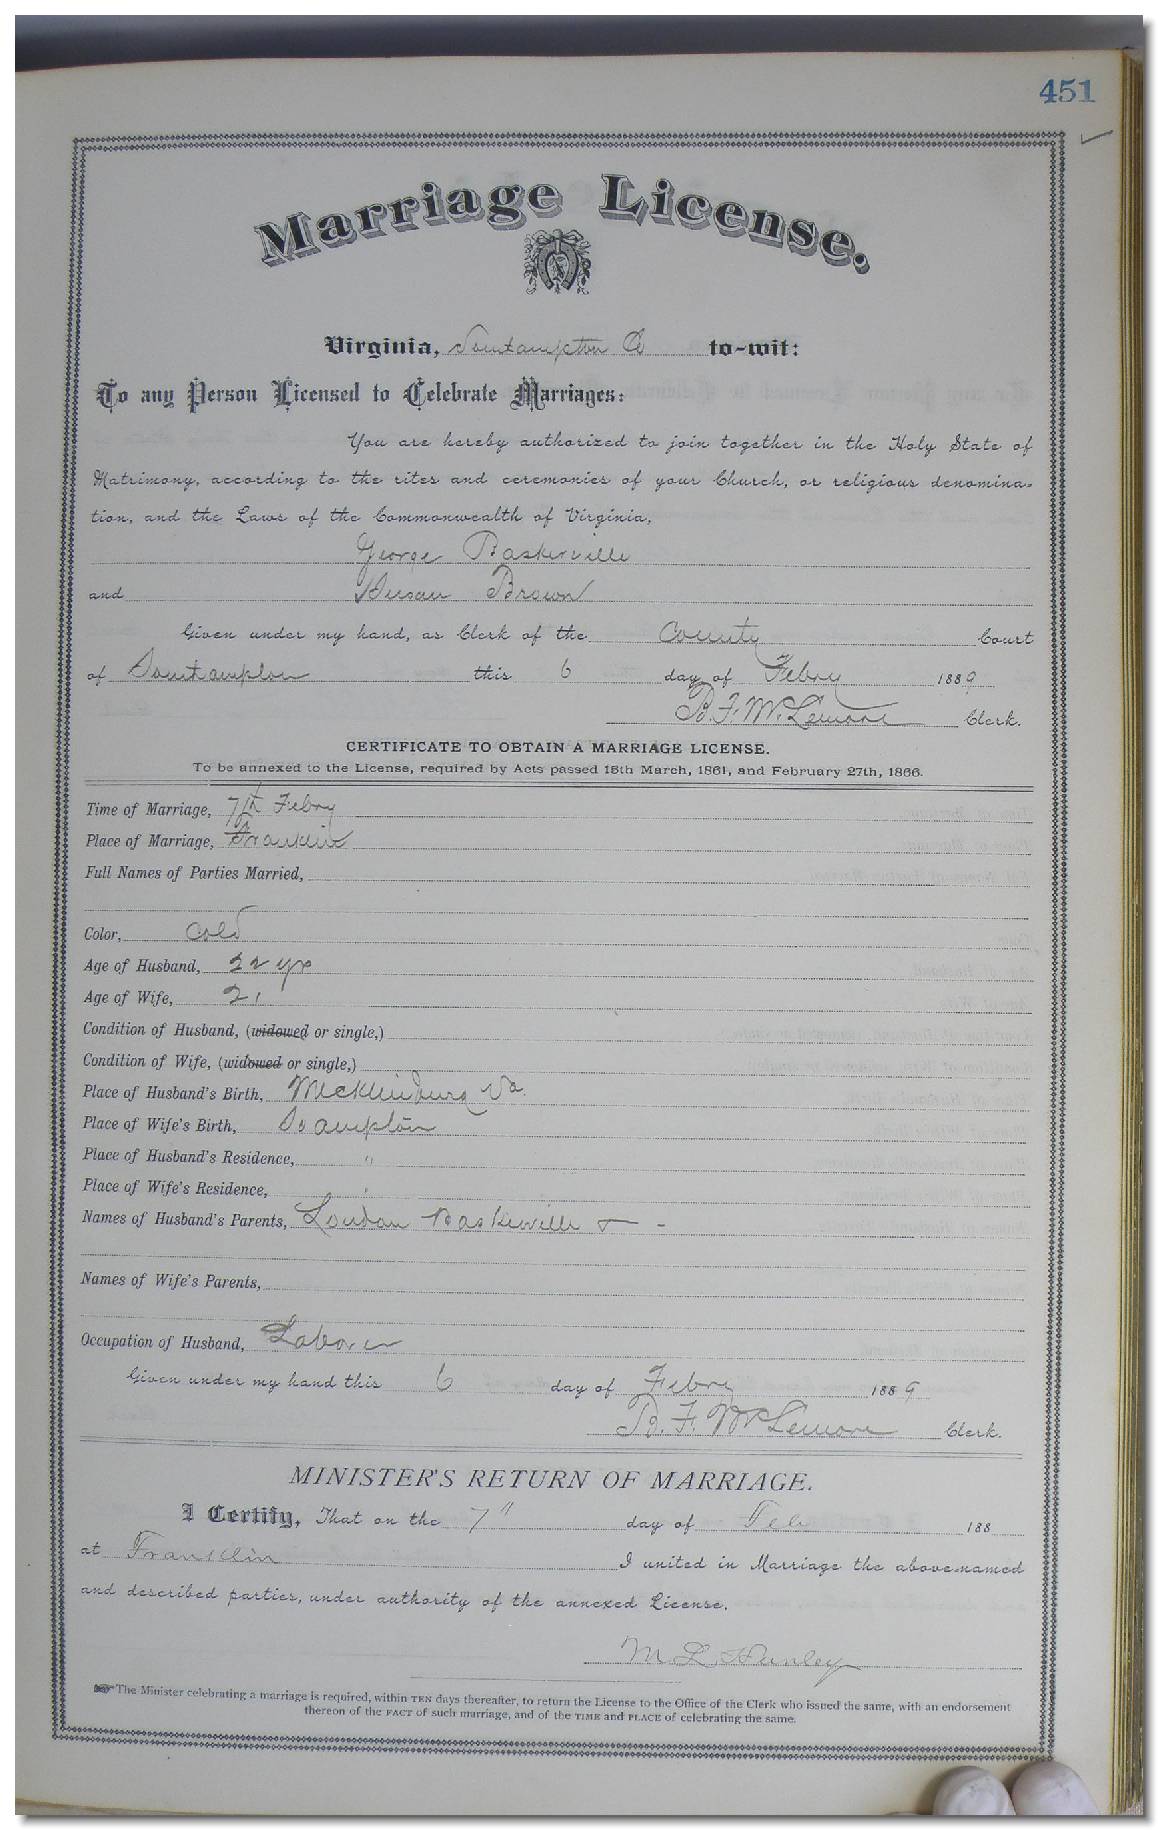 451
Marriage License.
Virginia, Southampton Co to-wit:
To any Person Licensed to Celebrate Marriages:
You are hereby authorized to join together in the Holy State of
Matrimony, according to the rites and ceremonies of your Church, or religious denomina-
tion, and the Laws of the Commonwealth of Virginia,
George Baskerville
and Susan Brown
Given under my hand, as Clerk of the County Court
of Southampton this 6 day of Febry 1889
B. F. McLemore Clerk.
CERTIFICATE TO OBTAIN A MARRIAGE LICENSE.
To be annexed to the License, required by Acts passed 15th March, 1861, and February 27th, 1866.
Time of Marriage, 7th Febry
Place of Marriage, Franklin
Full Names of Parties Married,
Color, Cold
Age of Husband, 22 yrs
Age of Wife, 21
Condition of Husband, (widowed or single,)
Condition of Wife, (widowed or single,)
Place of Husband's Birth, Mecklenburg Va.
Place of Wife's Birth, Soampton
Place of Husband's Residence, "
Place of Wife's Residence, "
Names of Husband's Parents, Loudan Baskerville + -
Names of Wife's Parents,
Occupation of Husband, Laborer
Given under my hand this 6 day of Febry 1889
B. F. McLemore Clerk.
MINISTER'S RETURN OF MARRIAGE.
I Certify, That on the 7" day of Feb 188
at Franklin I united in Marriage the above-named
and described parties, under authority of the annexed License.
M. L. Hunley
The Minister celebrating a marriage is required, within TEN days thereafter, to return the License to the Office of the Clerk who issued the same, with an endorsement
thereon of the FACT of such marriage, and of the TIME and PLACE of celebrating the same.